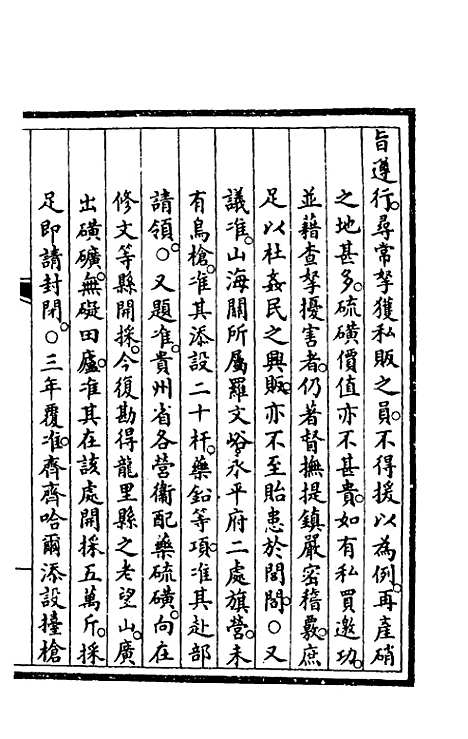 旨遵行。尋常拏獲私販之員。不得援以為例。再產硝
之地甚多。硫磺價值亦不甚貴。如有私買邀功。
並藉查拏擾害者。仍著督撫提鎮嚴密稽覈。庶
足以杜姦民之興販。亦不至貽患於閭閻。○又
議准。山海關所屬羅文峪。永平府二處旗營。未
有鳥槍。准其添設二十杆。藥鉛等項。准其赴部
請領。○又題准。貴州省各營衞配藥硫磺。向在
修文等縣開採。今復勘得龍里縣之老望山。廣
出磺礦。無礙田廬。准其在該處開採五萬斤。採
足即請封閉。○三年覆准。齊齊哈爾添設擡槍